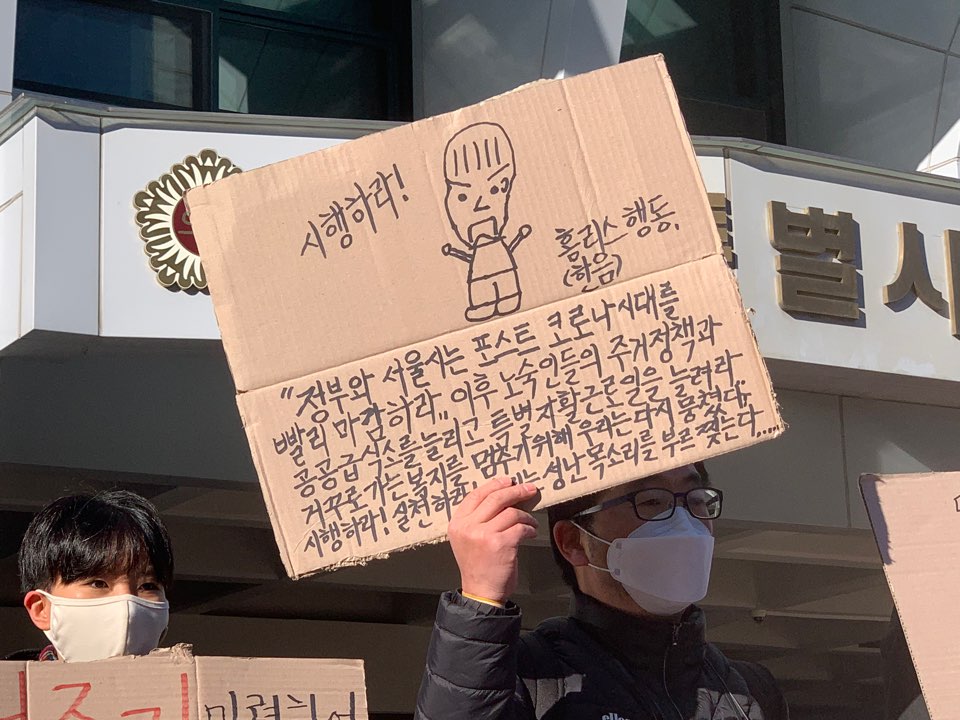 시행하라!
홈리스행동,
(한음)
"정부와 서울시는 포스트 코로나시대를
빨리 마감하라,, 이후 노숙인들의 주거정책과
공공급식소를 늘리고 특별자활근로일을 늘려라..
거꾸로가는복지를 멈추기위해 우리는 다시 뭉쳤다,,
시행하라! 실천하라, 성난 목소리를 부르짖는다....
별시
의
elle